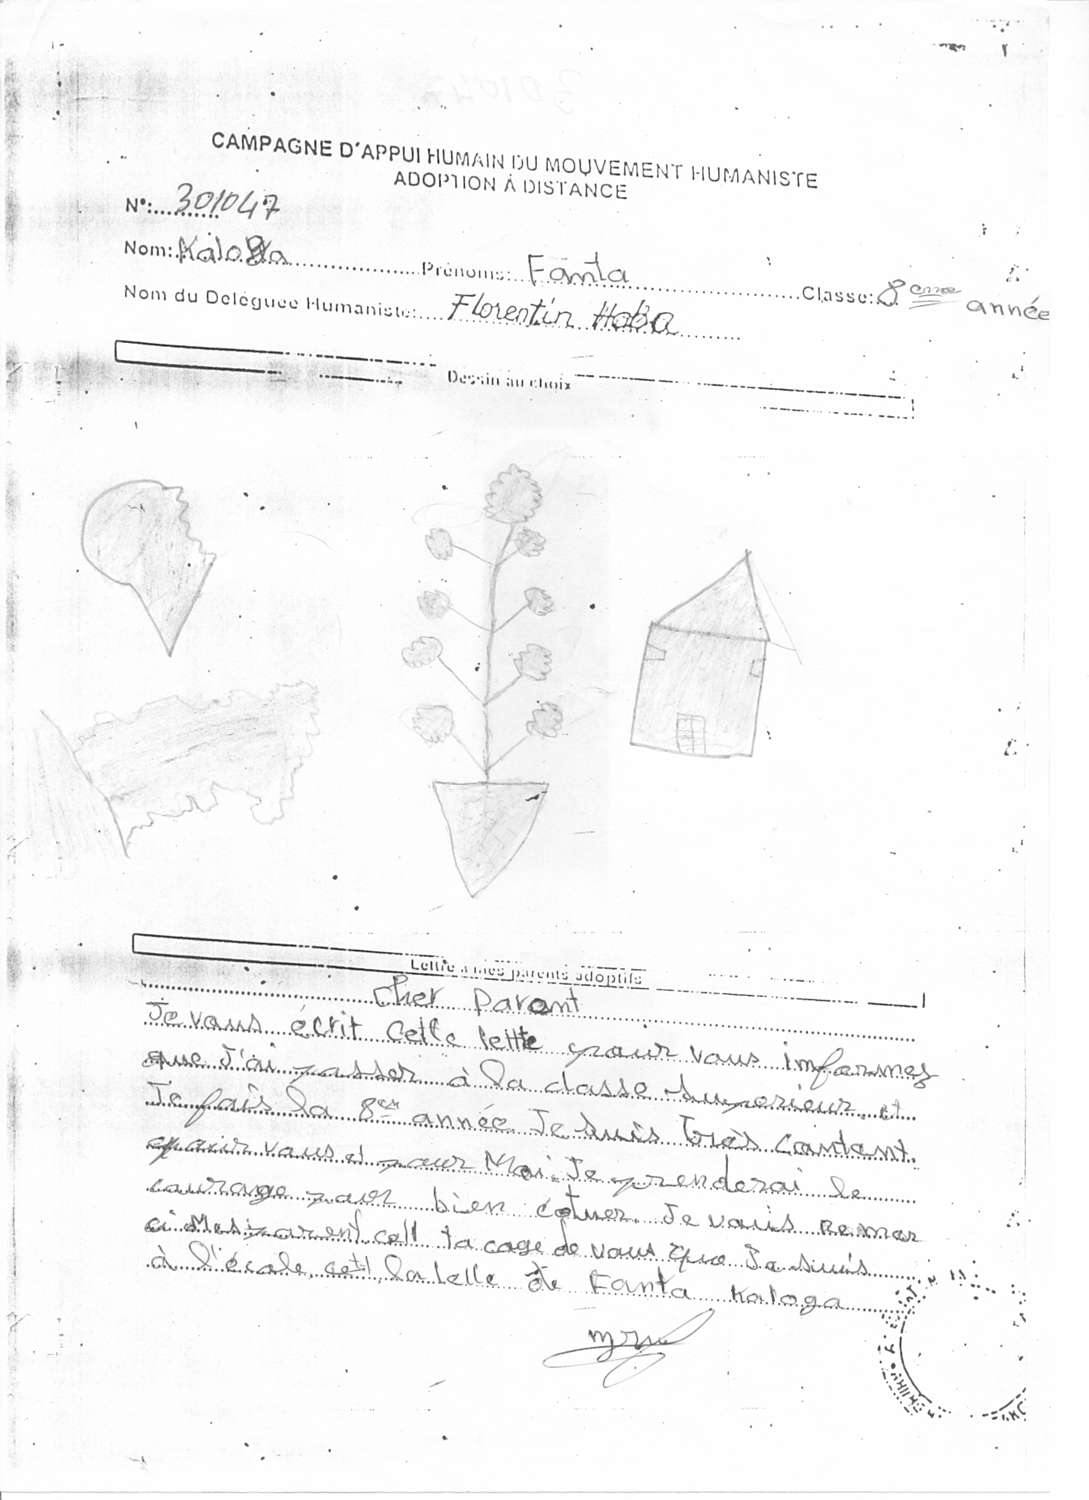 CAMPAGNE D'APPUI HUMAIN DU MOUVEMENT HUMANISTE
ADOPTION À DISTANCE
N°: 301047
Nom: Kaloga Prénoms: Fanta Classe: 8ème année
Nom du Délèguée Humaniste: Florentin Haba
Dessin au choix
Lettre à mes parents adoptifs
Cher Parant
Je vous écrit cette lettte pour vous imformez
que J'ai passer à la classe superieur et
Je fais la 8em année. Je suis très contant.
pour vous et pour Moi. Je prenderai le
courage pour bien étuer. Je vous remer
ci Mes parent cell ta cage de vous que Je suis
à l'école cetl la lelle de Fanta Kaloga